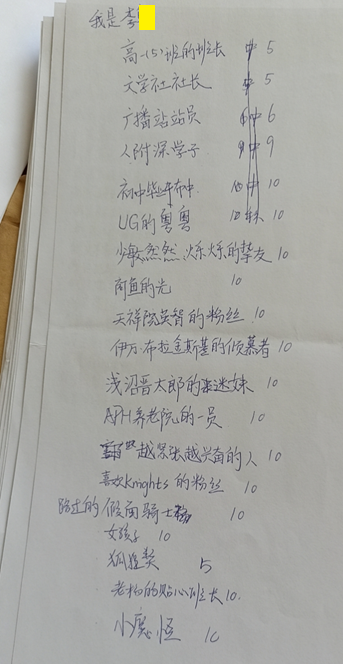 我是李
高一(5)班的班长 中 5
文学社社长 中 5
广播站站员 中 6
人附深学子 中 9
初中毕业布中 10 中 10
UG的粤粤 10 林 10
少敏、杰然、烁烁的挚友 10
闲鱼的光 10
天祥院英智的粉丝 10
伊万·布拉金斯基的倾慕者 10
浅沼晋太郎的迷妹 10
APH养老院的一员 10
越紧张越兴奋的人 10
喜欢Knights的粉丝 10
路过的假面骑士 10
女孩子 10
狐狸獒 5
老杨的贴心班长 10
小恒 10